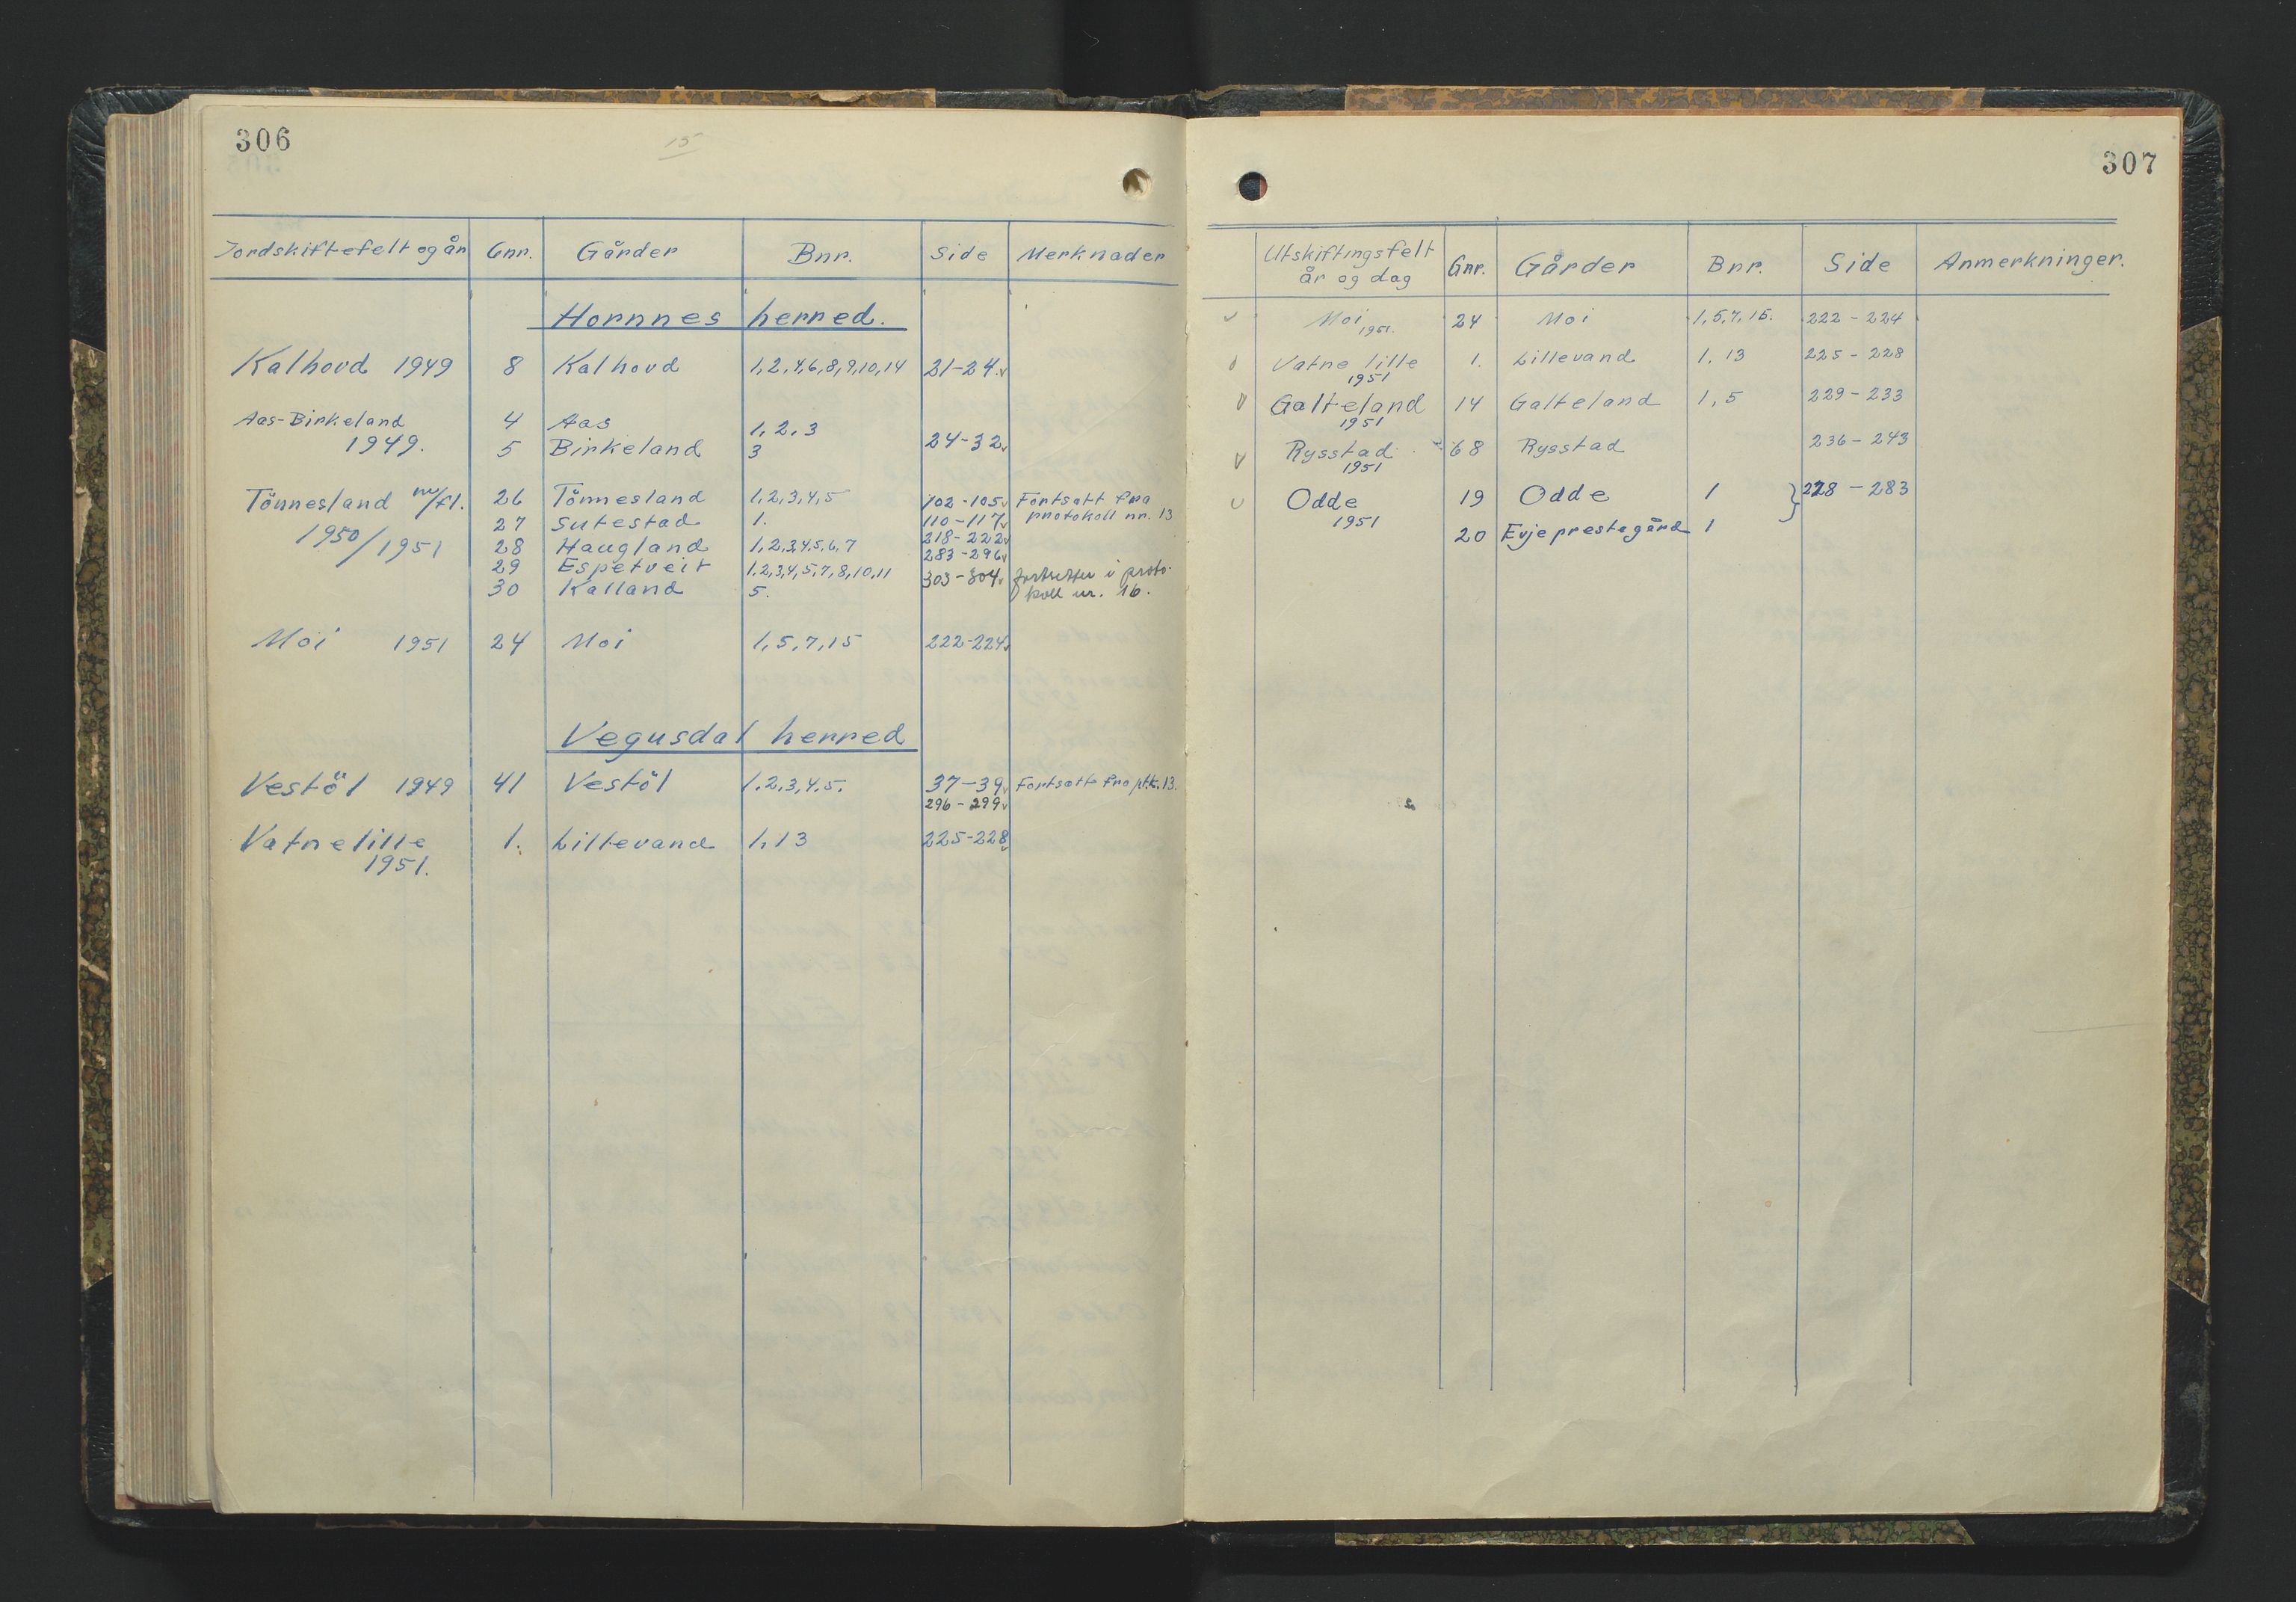 306
15
Jordskiftefelt og år Gnr. Gårder Bnr. Side Merknader
Hornnes herred.
Kalhovd 1949 8 Kalhovd 1,2,4,6,8,9,10,14 21-24
Aas-Birkeland 4 Aas 1,2,3
1949. 5 Birkeland 3 24-32
Tönnesland m/fl. 26 Tönnesland 1,2,3,4,5 102-105 Fortsatt fra
27 Sutestad 1. 110-117 protokoll nr. 13
1950/1951 28 Haugland 1,2,3,4,5,6,7 218-222
29 Espetveit 1,2,3,4,5,7,8,10,11 283-296
30 Kalland 5. 303-304 fortsetter i proto-
koll nr. 16.
Moi 1951 24 Moi 1,5,7,15 222-224
Vegusdal herred
Vestöl 1949 41 Vestöl 1,2,3,4,5. 37-39 Fortsatt fra ptk. 13.
296-299
Vatne lille 1. Lillevand 1,13 225-228
1951.
307
Utskiftingsfelt
år og dag Gnr. Gårder Bnr. Side Anmerkninger.
Moi 24 Moi 1,5,7,15. 222-224
1951.
Vatne lille 1. Lillevand 1, 13 225-228
1951
Galteland 14 Galteland 1, 5 229-233
1951
Rysstad 68 Rysstad 236-243
1951
Odde 19 Odde 1 } 278-283
1951
20 Evje prestegård 1